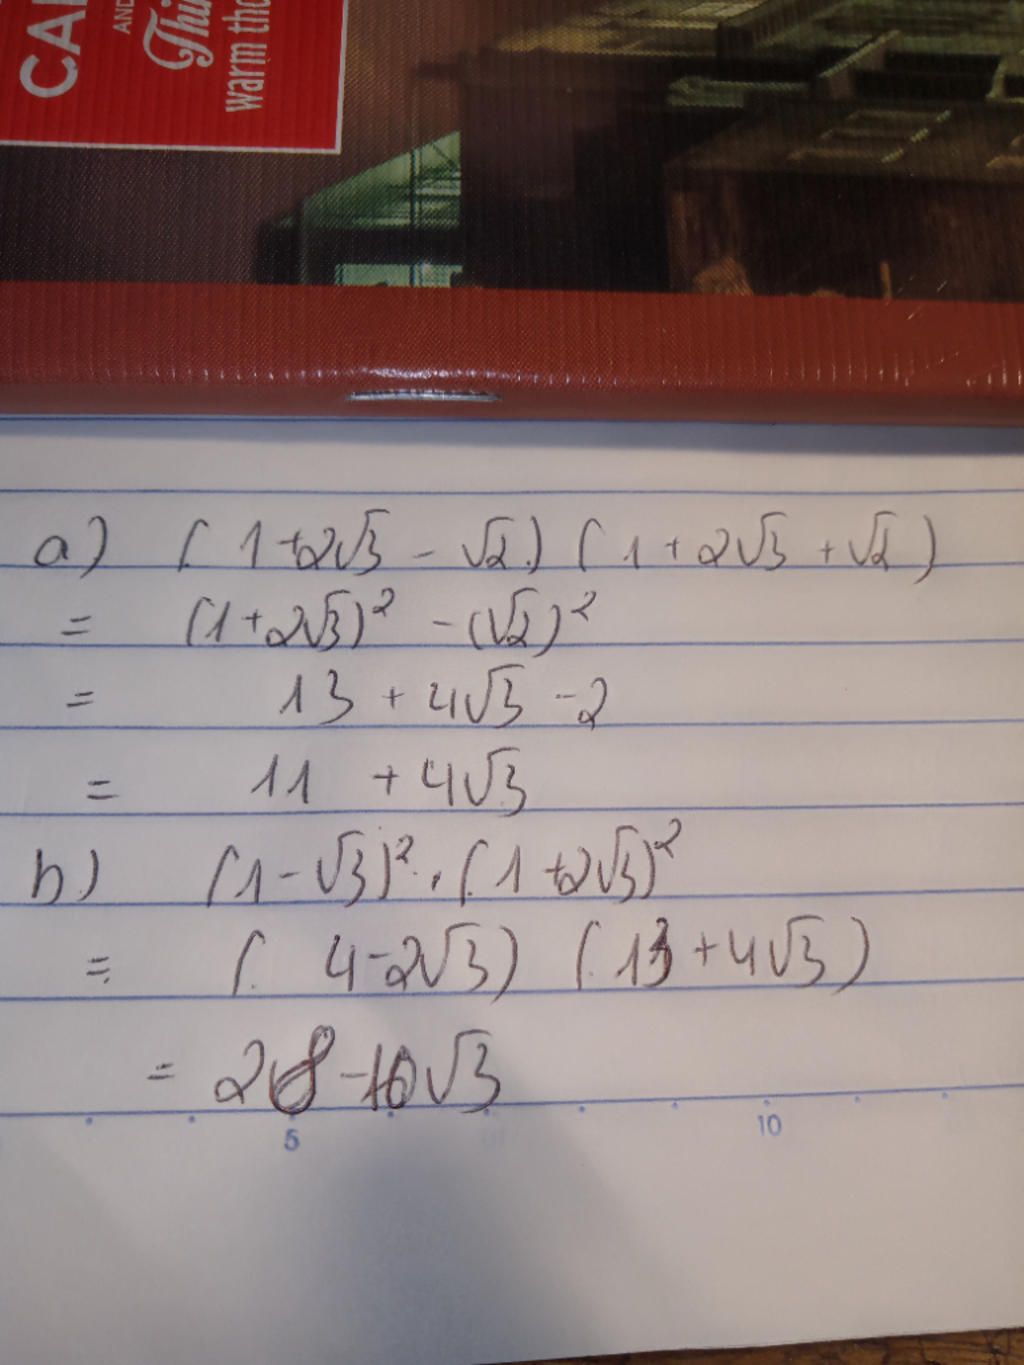 CAI
AND
Thi
warm tho
a) (1+2√3 - √2) (1+2√3 + √2)
= (1+2√3)² - (√2)²
= 13 + 4√3 - 2
= 11 + 4√3
b) (1-√3)² . (1+2√3)²
= (4-2√3) (13+4√3)
= 28 - 10√3
5 10